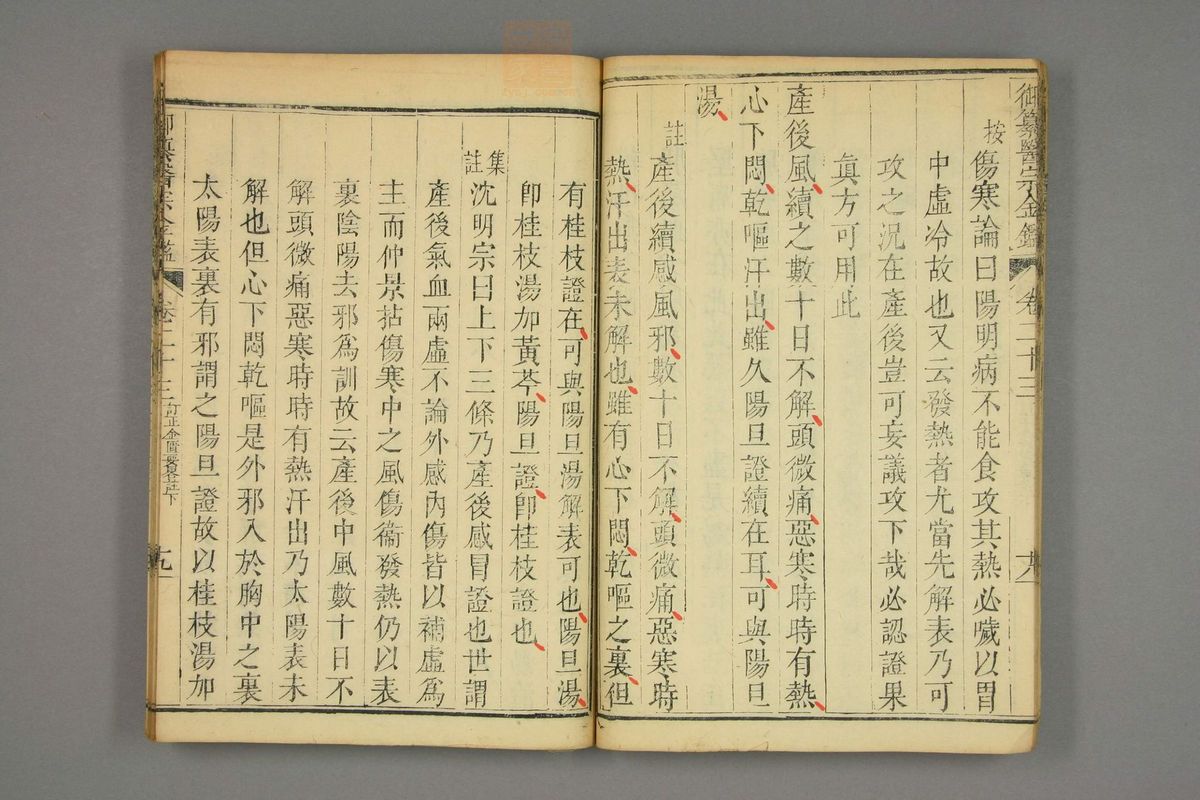 御纂醫宗金鑑 卷二十三
按傷寒論曰陽明病不能食攻其熱必噦以胃
中虛冷故也又云發熱者尤當先解表乃可
攻之況在產後豈可妄議攻下哉必認證果
眞方可用此
產後風續之數十日不解頭微痛惡寒時時有熱
心下悶乾嘔汗出雖久陽旦證續在耳可與陽旦
湯
註產後續感風邪數十日不解頭微痛惡寒時
熱汗出表未解也雖有心下悶乾嘔之裏但
有桂枝證在可與陽旦湯解表可也陽旦湯
卽桂枝湯加黃芩陽旦證卽桂枝證也
集註沈明宗曰上下三條乃產後感冒證也世謂
產後氣血兩虛不論外感內傷皆以補虛爲
主而仲景拈傷寒中之風傷衞發熱仍以表
裏陰陽去邪爲訓故云產後中風數十日不
解頭微痛惡寒時時有熱汗出乃太陽表未
解也但心下悶乾嘔是外邪入於胸中之裏
太陽表裏有邪謂之陽旦證故以桂枝湯加
卷二十三 訂正金匱要略註下 九一